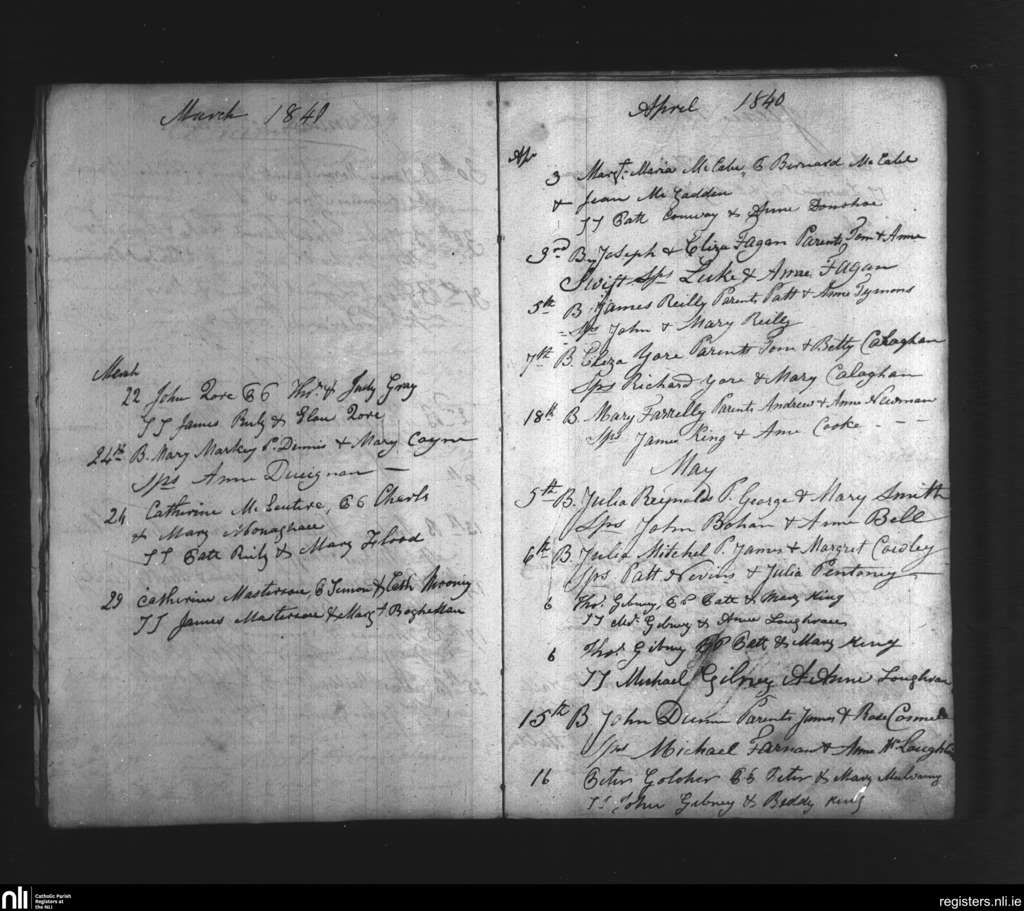 March 1840
March
22 John Yore E6 Thos. & Judy Gray
SS James Reily & Elon Yore
24th B. Mary Markey P. Dennis & Mary Coyne
Sps Anne Duignan —
24 Catherine McEntire, E6 Charls
& Mary Monaghan
SS Patk Reily & Mary Flood
29 Catherine Masterson, 6 Simon & Cath Mooniy
SS James Masterson & Margt
April 1840
Ap
3 Margt. Maria McCabe, 6 Bernard McCabe
& Jean McGadden
SS Patk Conway & Anne Donohoe
3rd B. Joseph & Eliza Fagan Parents Tom & Anne
Swift Sps Luke & Anne Fagan
5th B. James Reilly Parents Patt & Anne Tymons
Sps John & Mary Reilly
7th B. Eliza Yore Parents Tom & Betty Calaghan
Sps Richard Yore & Mary Calaghan
18th B. Mary Farrelly Parents Andrew & Anne Newman
Sps James King & Anne Cooke - - -
May
5th B. Julia Reynolds P. George & Mary Smith
Sps John Bohan & Anne Bell
6th B. Julia Mitchel P. James & Margret Cowley
Sps. Patt Nevins & Julia Pentoney
6 Thos. Gibney, E6 Patk & Mary King
SS Ml. Gibney & Anne Loughran
6 Thos. Gibney Patk & Mary King
SS Michael Gibney & Anne Loughran
15th B John Dunn Parents James & Rose Connell
Sps Michael Farnan & Anne McLoughlin
16 Peter E6 Peter & Mary Mulvanny
SS John Gibney & Biddy King
nli
Catholic Parish
Registers at
the NLI
registers.nli.ie